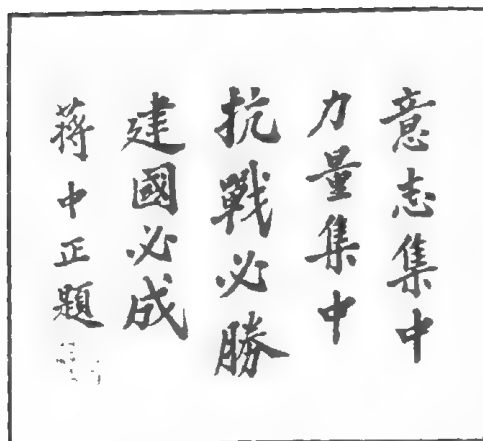 意志集中
力量集中
抗戰必勝
建國必成
蔣中正題